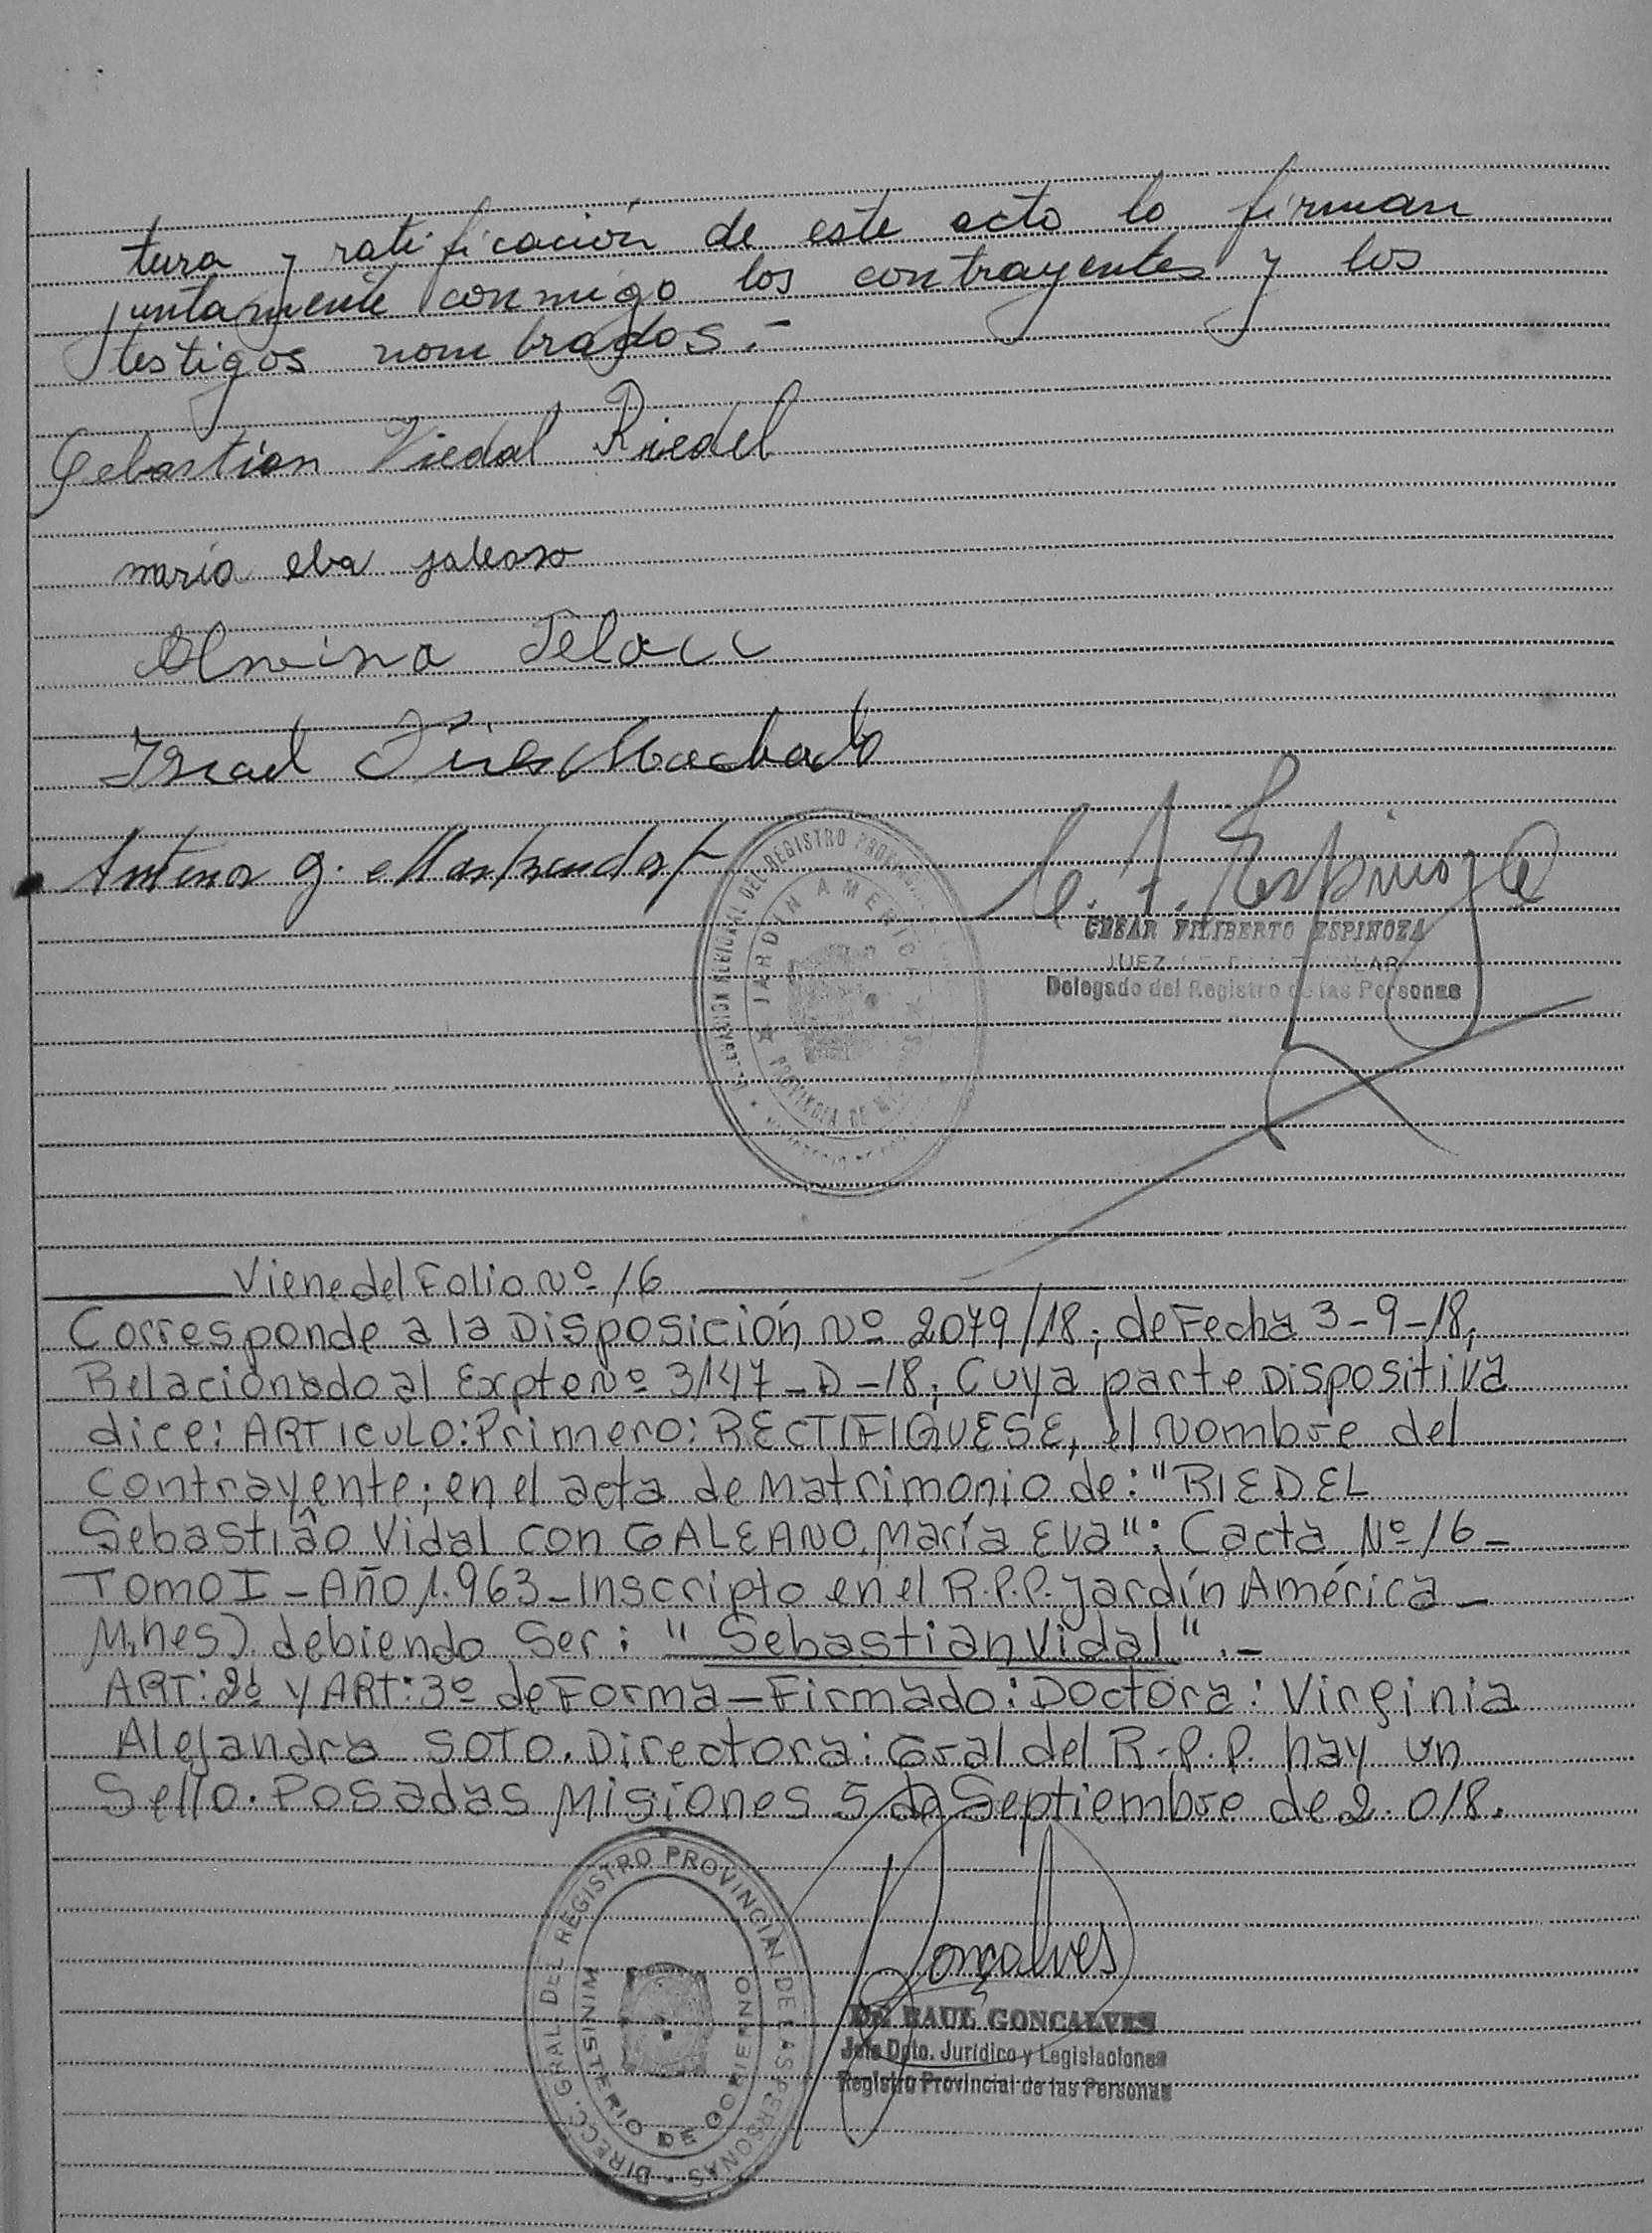 tura y ratificación de este acto lo firman
juntamente conmigo los contrayentes y los
testigos nombrados.-
Sebastian Viedal Riedel
maria eba
Israel Pires Machado
Antenor g.
DELEGACION REGIONAL DEL REGISTRO PROVINCIAL
JARDIN AMERICA
PROVINCIA DE
C. F. Espinoza
CESAR FILIBERTO ESPINOZA
JUEZ
Delegado del Registro de las Personas
Viene del Folio Nº 16
Corresponde a la Disposición Nº 2079/18; de Fecha 3-9-18,
Relacionado al Expte Nº 3147-D-18; Cuya parte Dispositiva
dice: ARTICULO: Primero: RECTIFIQUESE, el Nombre del
Contrayente; en el acta de Matrimonio de: "RIEDEL
Sebastiâo Vidal con GALEANO, María Eva": Cacta Nº 16-
Tomo I - Año 1.963 - Inscripto en el R.P.P. Jardín América -
Mnes). debiendo Ser: "Sebastian Vidal".-
ART: 2º y ART: 3º de Forma - Firmado: Doctora: Virginia
Alejandra SOTO. Directora: Gral del R.P.P. hay un
Sello. Posadas Misiones 5 de Septiembre de 2.018.
DIRECC. GRAL. DEL REGISTRO PROVINCIAL DE LAS PERSONAS
MINISTERIO DE GOBIERNO
Gonçalves
Dr. RAUL GONCALVES
Jefe Dpto. Jurídico y Legislaciones
Registro Provincial de las Personas